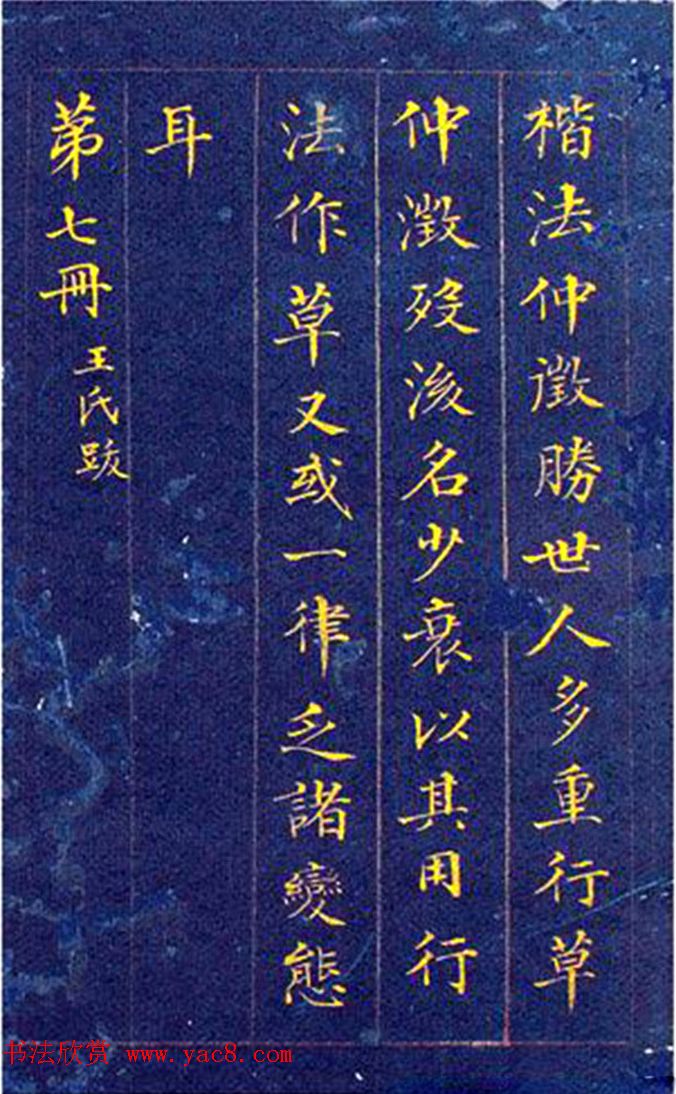 楷法仲徵勝世人多重行草
仲澂歿後名少衰以其用行
法作草又或一律乏諸變態
耳
第七冊 王氏跋
书法欣赏 www.yac8.com